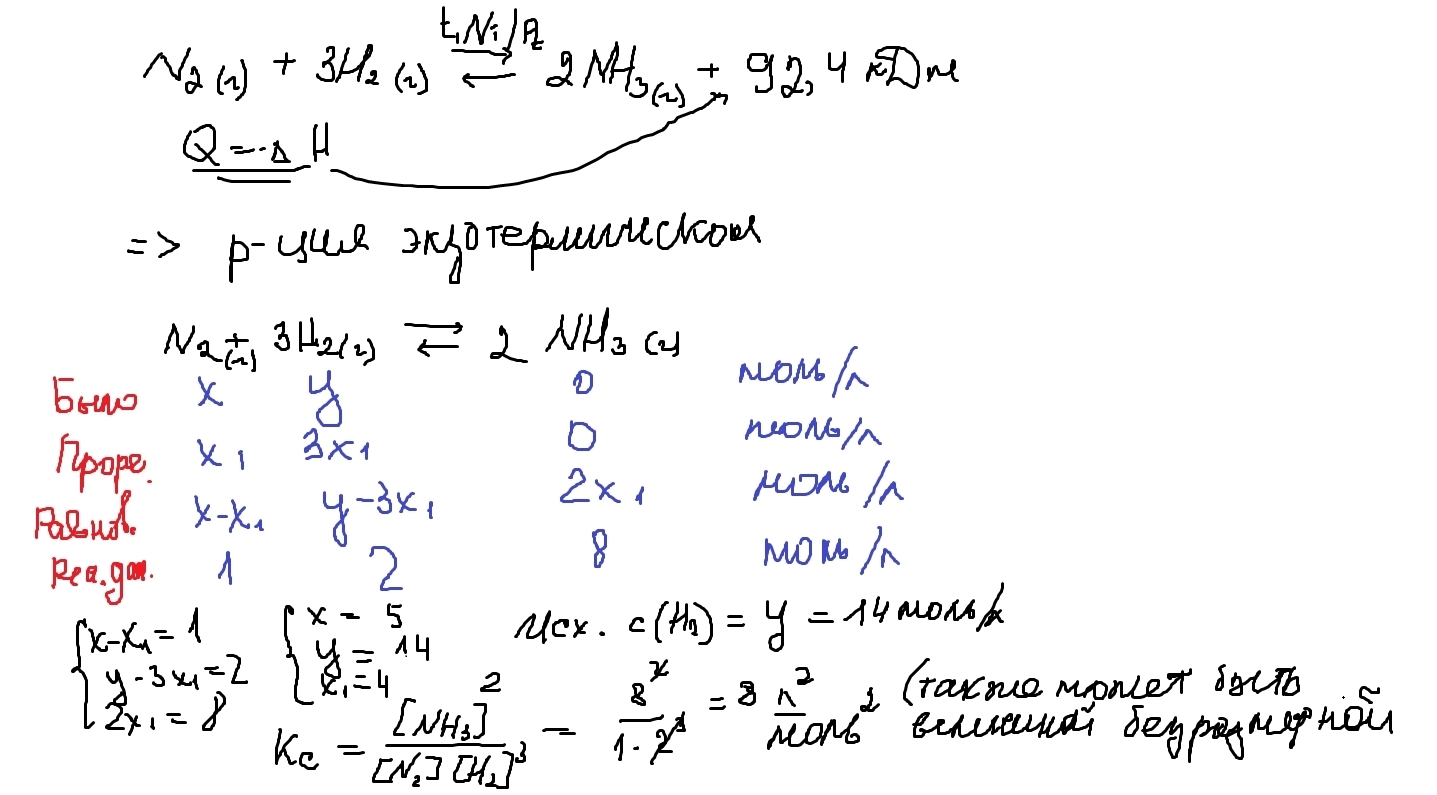 N₂(г) + 3H₂(г) ⇄ 2NH₃(г) + 92,4 кДж
t, Ni/Pt
Q = -Δ H
=> р-ция экзотермическая
N₂(г) + 3H₂(г) ⇄ 2 NH₃(г)
Было x y 0 моль/л
Проре. x₁ 3x₁ 0 моль/л
Равнов. x-x₁ y-3x₁ 2x₁ моль/л
Реа. дан. 1 2 8 моль/л
{ x-x₁ = 1 { x = 5 Исх. c(H₂) = y = 14 моль/л
y-3x₁ = 2 y = 14
2x₁ = 8 x₁ = 4
Kc = [NH₃]² / [N₂][H₂]³ = 8² / 1·2³ = 8 л²/моль² (также может быть
величиной безразмерной